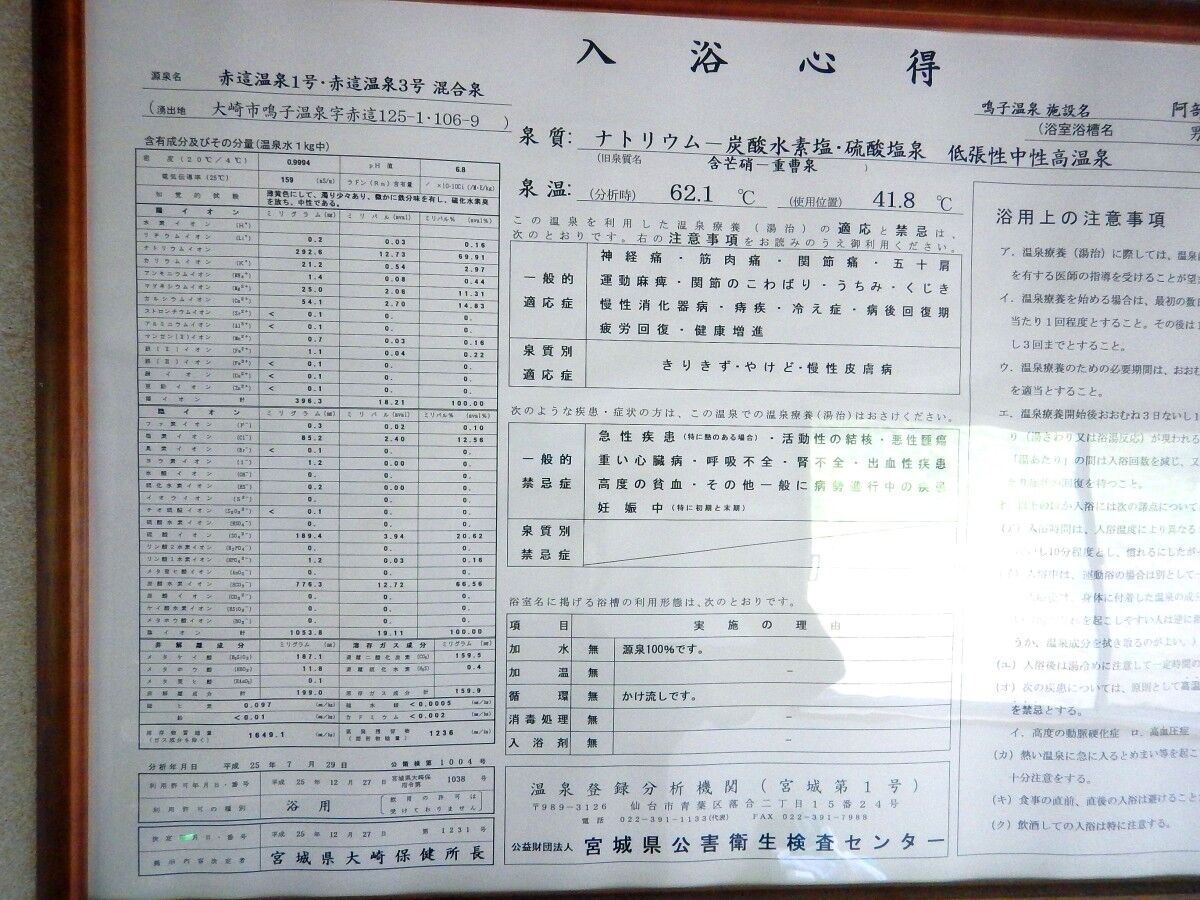 入浴心得
源泉名 赤這温泉1号・赤這温泉3号 混合泉
(湧出地 大崎市鳴子温泉字赤這125-1・106-9 )
含有成分及びその分量(温泉水1kg中)
密度(20℃/4℃) 0.9994 pH値 6.8
電気伝導率(25℃) 159 (mS/m) ラドン(Rn)含有量 / ×10-10Ci(/M・E/kg)
知覚的試験 薄黄色にして、濁り少々あり、微かに鉄分味を有し、硫化水素臭を放ち、中性である。
陽イオン ミリグラム(mg) ミリバル(mval) ミリバル%(mval%)
水素イオン (H⁺)
リチウムイオン (Li⁺) 0.2 0.03 0.16
ナトリウムイオン 292.6 12.73 69.91
カリウムイオン (K⁺) 21.2 0.54 2.97
アンモニウムイオン (NH₄⁺) 1.4 0.08 0.44
マグネシウムイオン (Mg²⁺) 25.0 2.06 11.31
カルシウムイオン (Ca²⁺) 54.1 2.70 14.83
ストロンチウムイオン (Sr²⁺) < 0.1 0. 0.
アルミニウムイオン (Al³⁺) < 0.1 0. 0.
マンガンイオン (Mn²⁺) 0.7 0.03 0.16
鉄(Ⅱ)イオン (Fe²⁺) 1.1 0.04 0.22
鉄(Ⅲ)イオン (Fe³⁺) < 0.1 0. 0.
銅イオン (Cu²⁺) < 0.1 0. 0.
亜鉛イオン (Zn²⁺) < 0.1 0. 0.
陽イオン計 396.3 18.21 100.00
陰イオン ミリグラム(mg) ミリバル(mval) ミリバル%(mval%)
フッ素イオン (F⁻) 0.3 0.02 0.10
塩素イオン (Cl⁻) 85.2 2.40 12.56
臭素イオン (Br⁻) < 0.1 0. 0.
ヨウ素イオン (I⁻) 1.2 0.00 0.
水酸イオン (OH⁻) 0. 0. 0.
硫化水素イオン (HS⁻) 0.2 0.00 0.
イオウイオン (S²⁻) 0. 0. 0.
チオ硫酸イオン (S₂O₃²⁻) < 0.1 0. 0.
硫酸水素イオン (HSO₄⁻) 0. 0. 0.
硫酸イオン (SO₄²⁻) 189.4 3.94 20.62
リン酸2水素イオン (H₂PO₄⁻) 0. 0. 0.
リン酸1水素イオン (HPO₄²⁻) 1.2 0.03 0.16
メタ亜ヒ酸イオン (AsO₂⁻) 0. 0. 0.
炭酸水素イオン (HCO₃⁻) 776.3 12.72 66.56
炭酸イオン (CO₃²⁻) 0. 0. 0.
ケイ酸水素イオン (HSiO₃⁻) 0. 0. 0.
メタホウ酸イオン (BO₂⁻) 0. 0. 0.
陰イオン計 1053.8 19.11 100.00
非解離成分 ミリグラム(mg) 溶存ガス成分 ミリグラム(mg)
メタケイ酸 (H₂SiO₃) 187.1 遊離二酸化炭素 (CO₂) 159.5
メタホウ酸 (HBO₂) 11.8 遊離硫化水素 (H₂S) 0.4
メタ亜ヒ酸 (HAsO₂) 0.1
非解離成分計 199.0 溶存ガス成分計 159.9
総ヒ素 0.097 (mg/kg) 総水銀 <0.0005 (mg/kg)
鉛 <0.01 (mg/kg) カドミウム <0.002 (mg/kg)
溶存物質総量(ガス成分を除く) 1649.1 (mg/kg) 蒸発残留物 1236 (mg/kg)
分析年月日 平成25年7月29日 公簡検第1004号
利用許可年月日・番号 平成25年12月27日 宮城県大崎保指令第 1038 号
利用許可の種別 浴用 (飲用の許可は受けておりません)
決定年月日・番号 平成25年12月27日 第1231号
掲示内容決定者 宮城県大崎保健所長
泉質: ナトリウム−炭酸水素塩・硫酸塩泉 低張性中性高温泉
(旧泉質名 含芒硝−重曹泉 )
泉温: (分析時) 62.1 ℃ (使用位置) 41.8 ℃
この温泉を利用した温泉療養(湯治)の適応と禁忌は、
次のとおりです。右の注意事項をお読みのうえ御利用ください。
一般的適応症
神経痛・筋肉痛・関節痛・五十肩
運動麻痺・関節のこわばり・うちみ・くじき
慢性消化器病・痔疾・冷え症・病後回復期
疲労回復・健康増進
泉質別適応症
きりきず・やけど・慢性皮膚病
次のような疾患・症状の方は、この温泉での温泉療養(湯治)はおさけください。
一般的禁忌症
急性疾患(特に熱のある場合)・活動性の結核・悪性腫瘍
重い心臓病・呼吸不全・腎不全・出血性疾患
高度の貧血・その他一般に病勢進行中の疾患
妊娠中(特に初期と末期)
泉質別禁忌症
浴室名に掲げる浴槽の利用形態は、次のとおりです。
項目 実施の理由
加水 無 源泉100%です。
加温 無 −
循環 無 かけ流しです。
消毒処理 無 −
入浴剤 無 −
温泉登録分析機関(宮城第1号)
〒989-3126 仙台市青葉区落合二丁目15番24号
電話 022-391-1133(代表) FAX 022-391-7988
公益財団法人 宮城県公害衛生検査センター
鳴子温泉 施設名 阿部
(浴室浴槽名 男
浴用上の注意事項
ア. 温泉療養(湯治)に際しては、温泉
を有する医師の指導を受けることが望
イ. 温泉療養を始める場合は、最初の数日
当たり1回程度とすること。その後は1
し3回までとすること。
ウ. 温泉療養のための必要期間は、おおむ
を適当とすること。
エ. 温泉療養開始後おおむね3日ないし1
り(湯さわり又は浴湯反応)が現われる
「湯あたり」の間は入浴回数を減じ、又
たり症状の回復を待つこと。
以上のほか入浴には次の諸点について
(ア) 入浴時間は、入浴温度により異なる
ないし10分程度とし、慣れるにしたが
入浴中は、運動浴の場合は別として
は、身体に付着した温泉の成分
を起こしやすい人は逆に
うか、温泉成分を拭き取るのがよい。
(エ) 入浴後は湯冷めに注意して一定時間の
(オ) 次の疾患については、原則として高温
を禁忌とする。
イ. 高度の動脈硬化症 ロ. 高血圧症
(カ) 熱い温泉に急に入るとめまい等を起こ
十分注意をする。
(キ) 食事の直前、直後の入浴は避けること
(ク) 飲酒しての入浴は特に注意する。